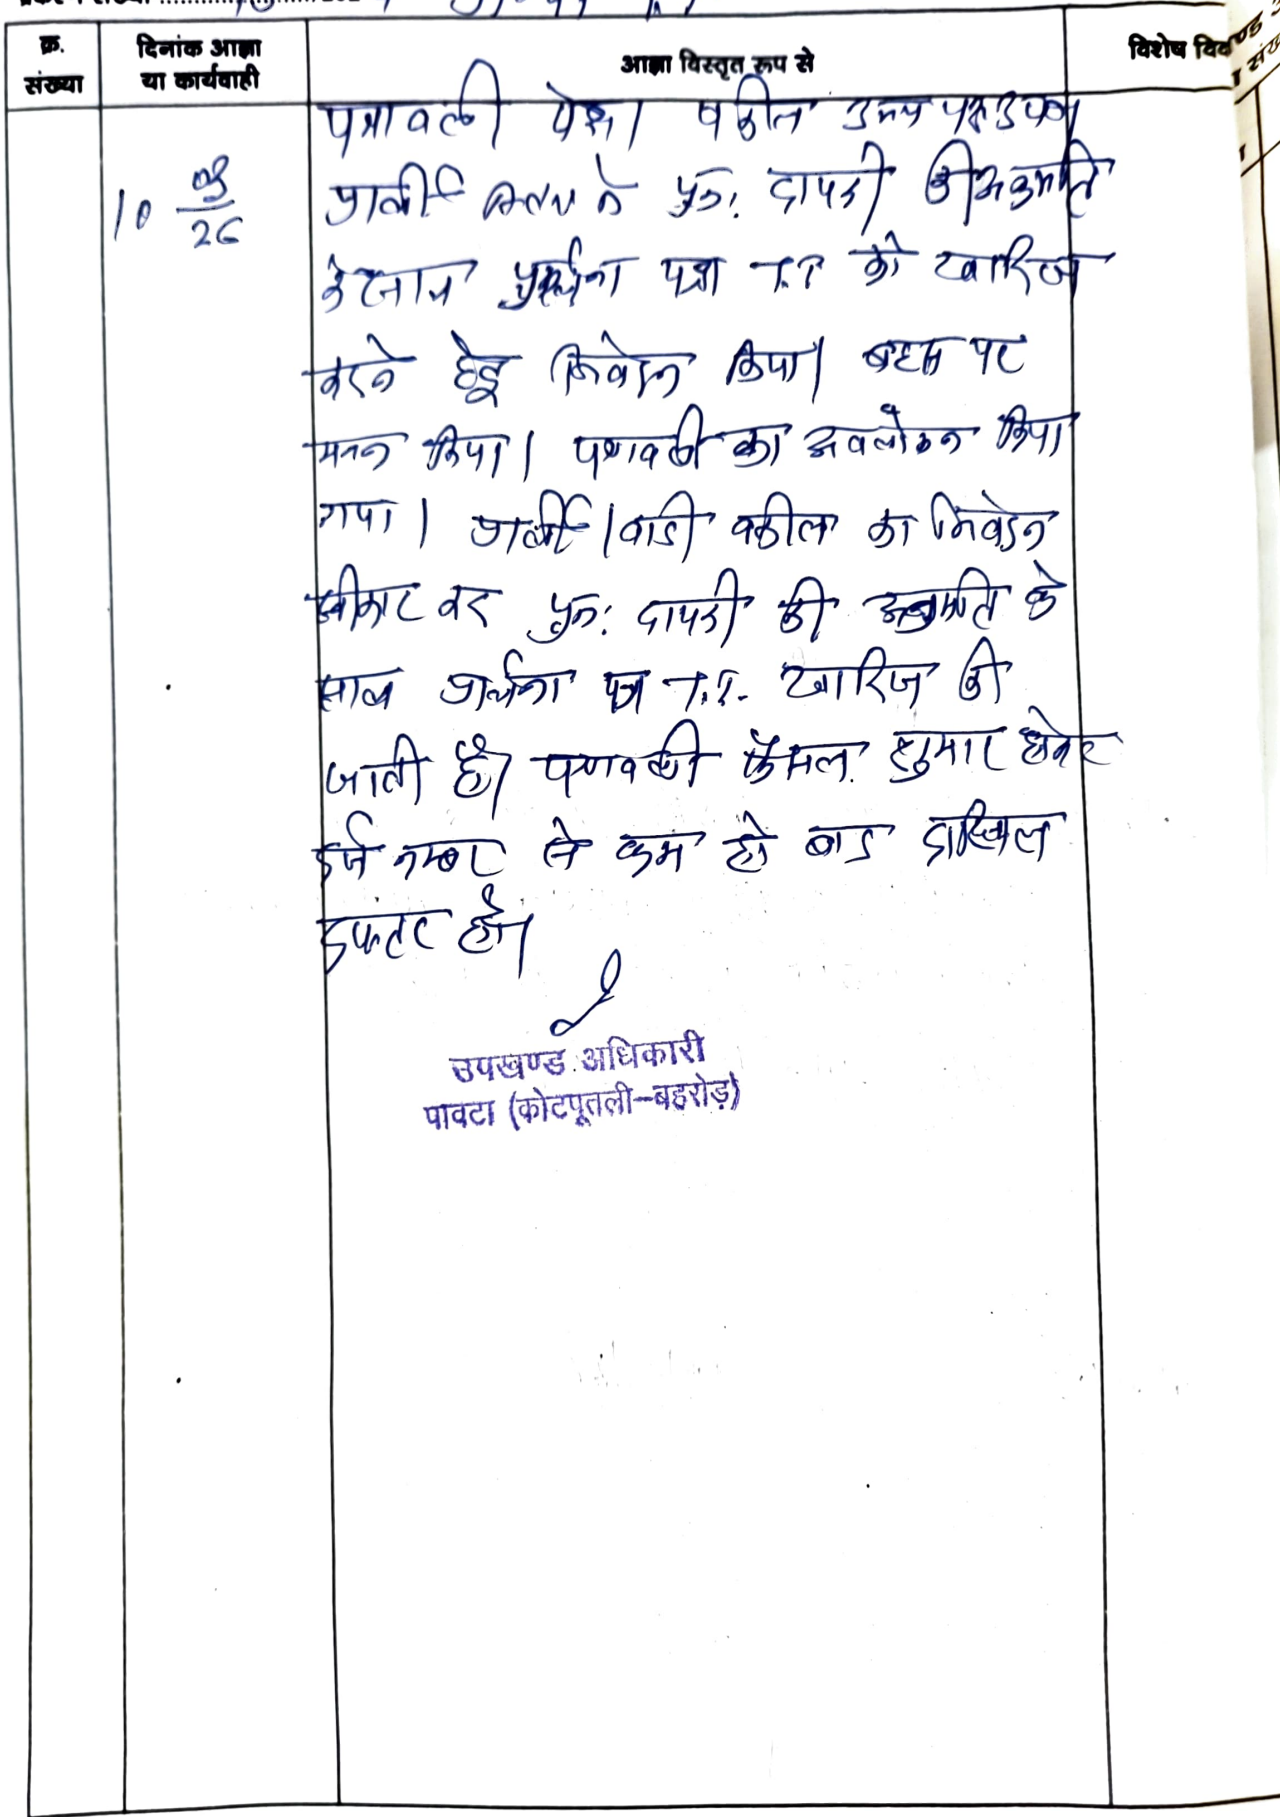 क्र.
संख्या
दिनांक आज्ञा
या कार्यवाही
आज्ञा विस्तृत रूप से
विशेष विव
10 03/26
पत्रावली पेश। वकील उभय पक्ष उपo
प्रार्थी ने पुन: दायरी की अनुमति
के साथ प्रार्थना पत्र T.I को खारिज
करने हेतु निवेदन किया। बहस पर
मनन किया। पत्रावली का अवलोकन किया
गया। प्रार्थी/वादी वकील का निवेदन
स्वीकार कर पुन: दायरी की अनुमति के
साथ प्रार्थना पत्र T.I. खारिज की
जाती है। पत्रावली फैसल शुमार होकर
दर्ज नम्बर से कम हो बाद दाखिल
दफ्तर हो।
उपखण्ड अधिकारी
पावटा (कोटपूतली-बहरोड़)